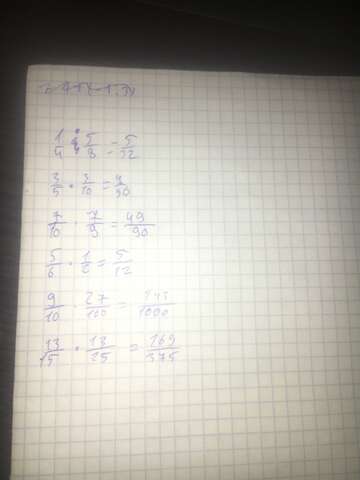 1/4 : 5/8 = 5/32
3/5 · 3/10 = 9/50
7/10 · 7/9 = 49/90
5/6 · 1/2 = 5/12
9/10 · 27/100 = 243/1000
13/15 · 13/25 = 169/375